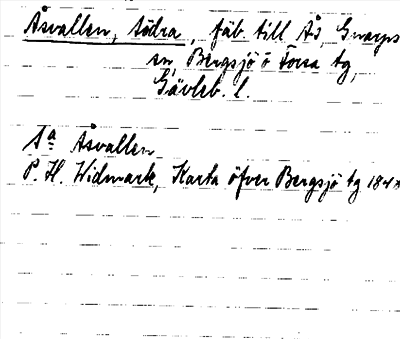 Åsvallen, södra, fäb. till Ås, Gnarps
sn, Bergsjö o Forsa tg,
Gävleb. l.
Sa Åsvallen
P. H. Widmark, Karta öfver Bergsjö tg